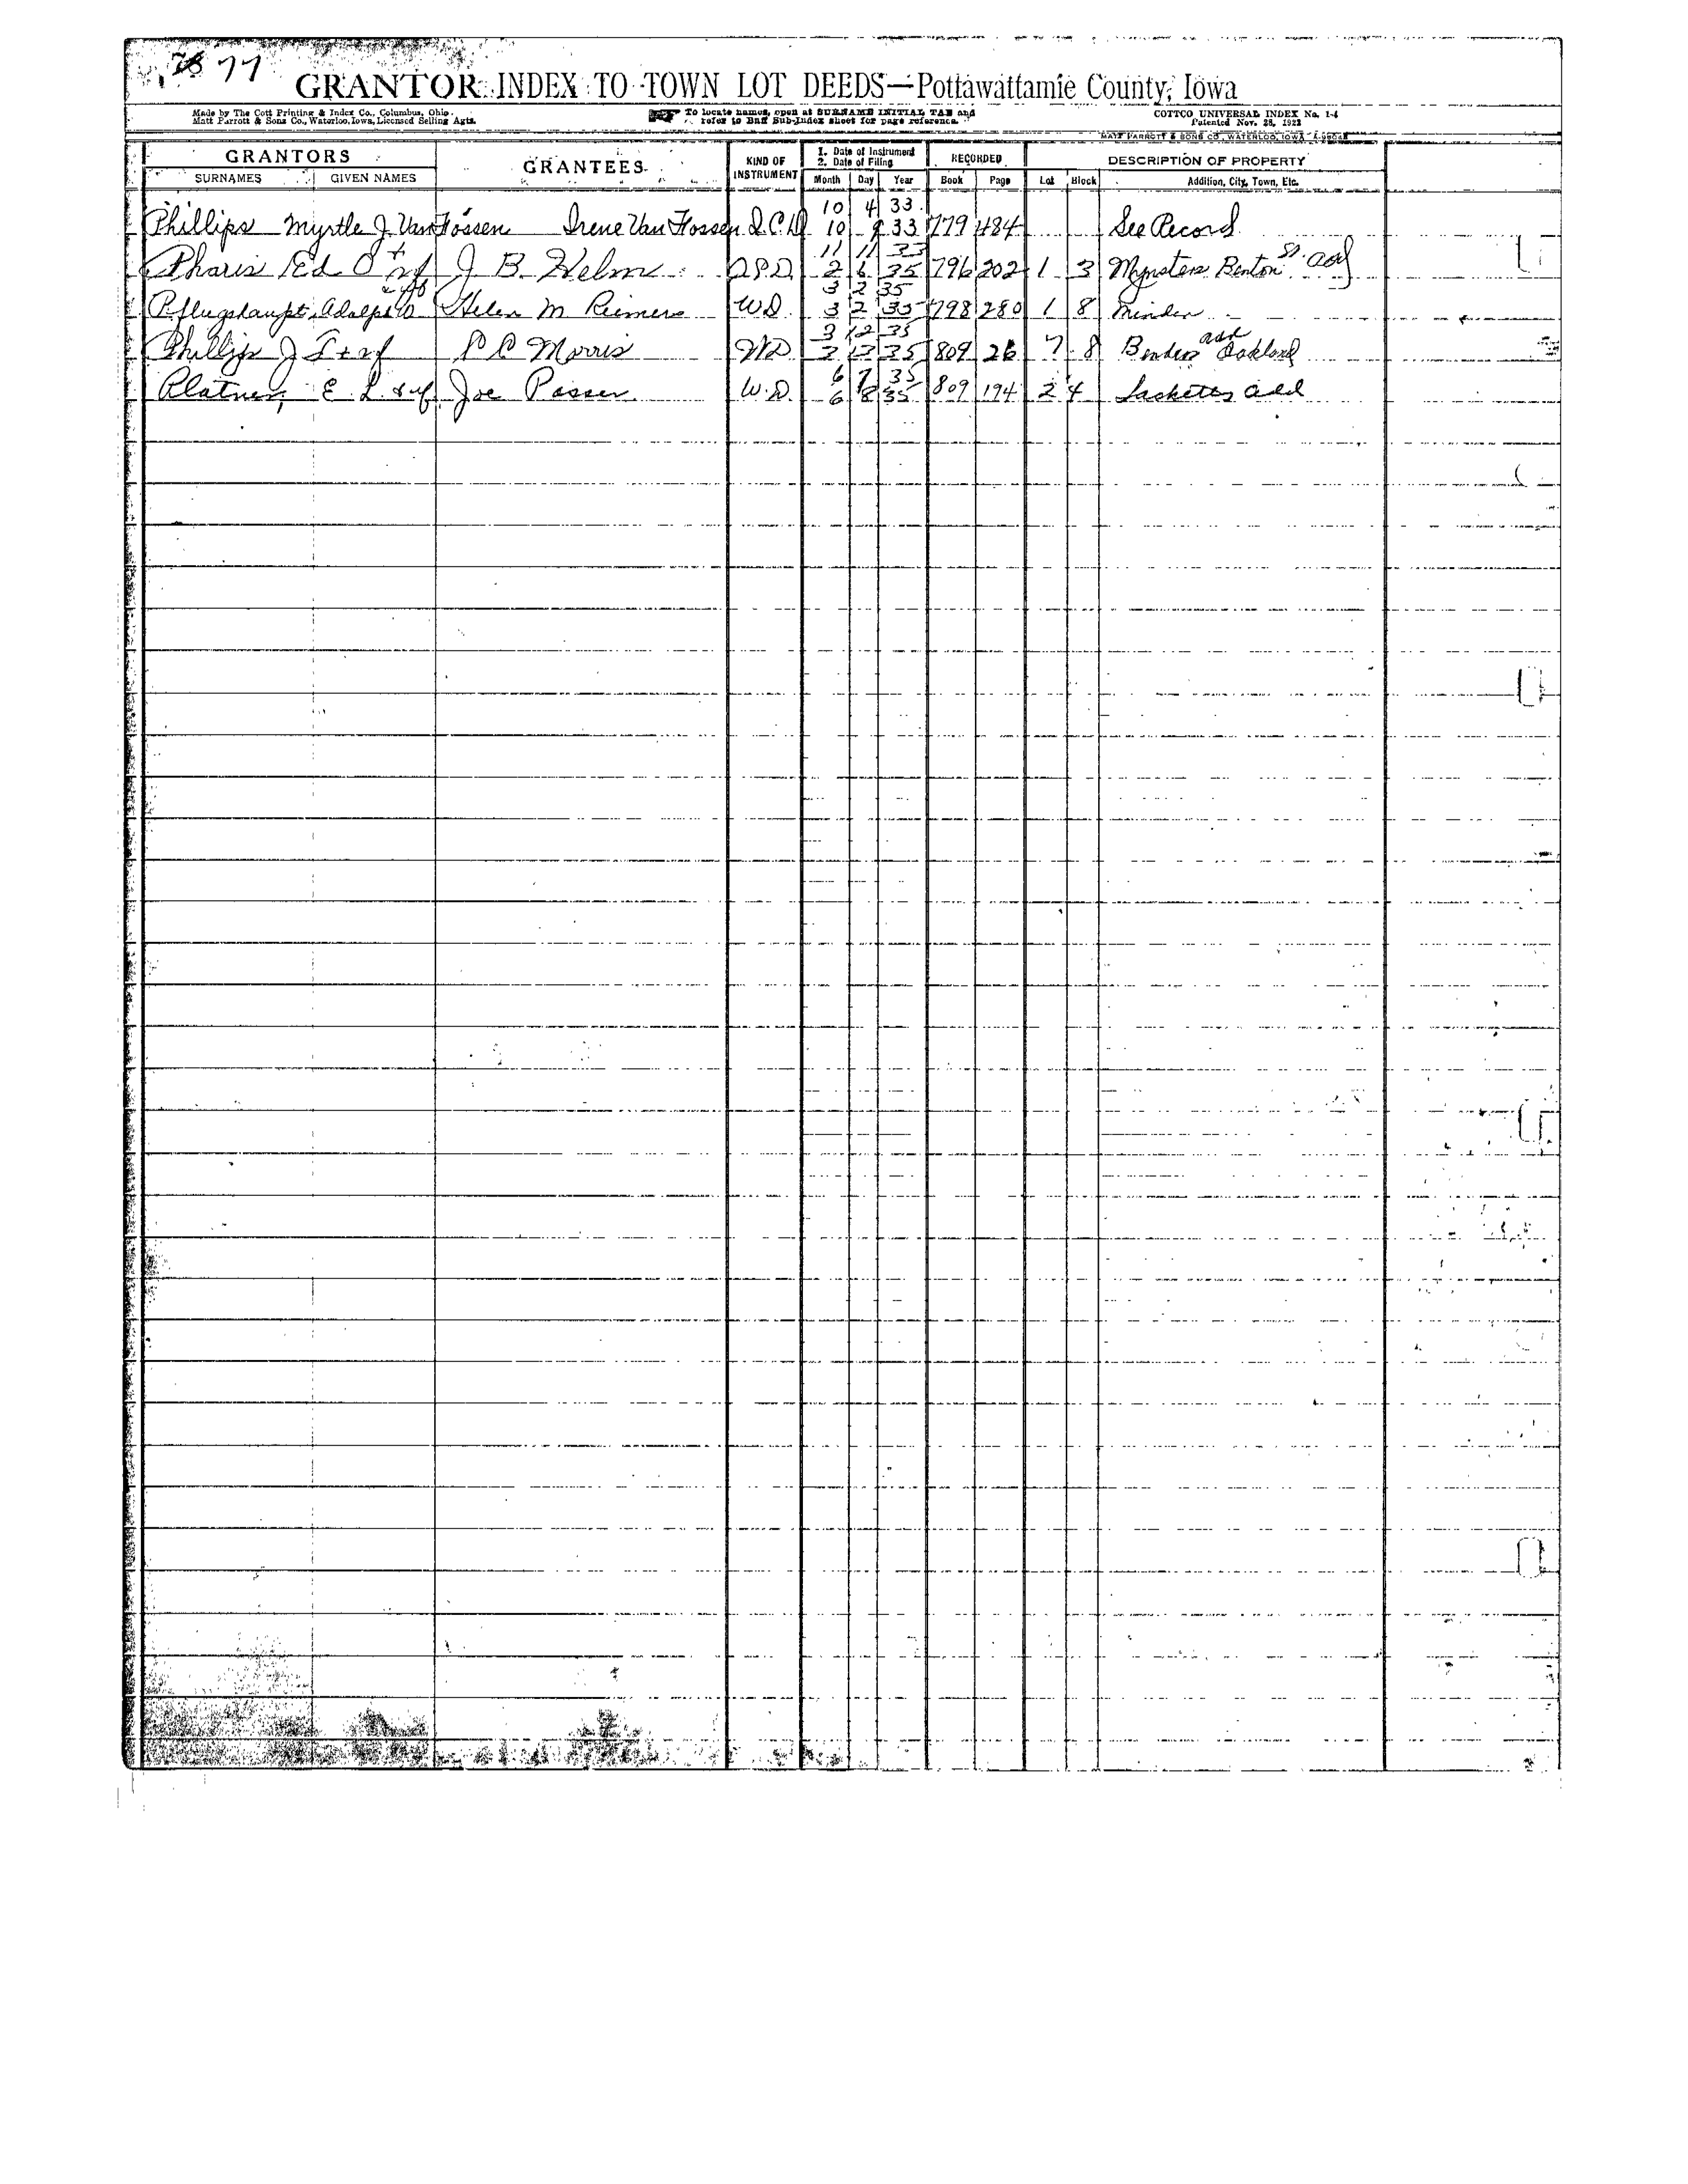 77
GRANTOR INDEX TO TOWN LOT DEEDS—Pottawattamie County, Iowa
Made by The Cott Printing & Index Co., Columbus, Ohio.
Matt Parrott & Sons Co., Waterloo, Iowa, Licensed Selling Agts.
To locate names, open at SURNAME INITIAL TAB and
refer to Buff Sub-Index sheet for page reference.
COTTCO UNIVERSAL INDEX No. 1-4
Patented Nov. 28, 1922
MATT PARROTT & SONS CO., WATERLOO, IOWA
GRANTORS GRANTEES KIND OF INSTRUMENT 1. Date of Instrument 2. Date of Filing RECORDED DESCRIPTION OF PROPERTY
SURNAMES GIVEN NAMES Month Day Year Book Page Lot Block Addition, City, Town, Etc.
10 4 33
Phillips Myrtle J. Van Fossen Irene Van Fossen Q.C.D 10 9 33 779 484 See Record
11 11 33
Pharis Ed O + wf J. B. Helm 2 6 35 796 202 1 3 Mynsters Benton St. add
3 2 35
Pflughaupt, Adolph Helen M Reimers W.D. 3 2 35 798 280 1 8 Minden
3 12 35
Phillips J T + wf P C Morris WD 3 13 35 809 26 7 8 Benders add Oakland
6 7 35
Platner, E. L. & wf. Joe Passer W.D. 6 8 35 809 194 2 4 Sacketts add